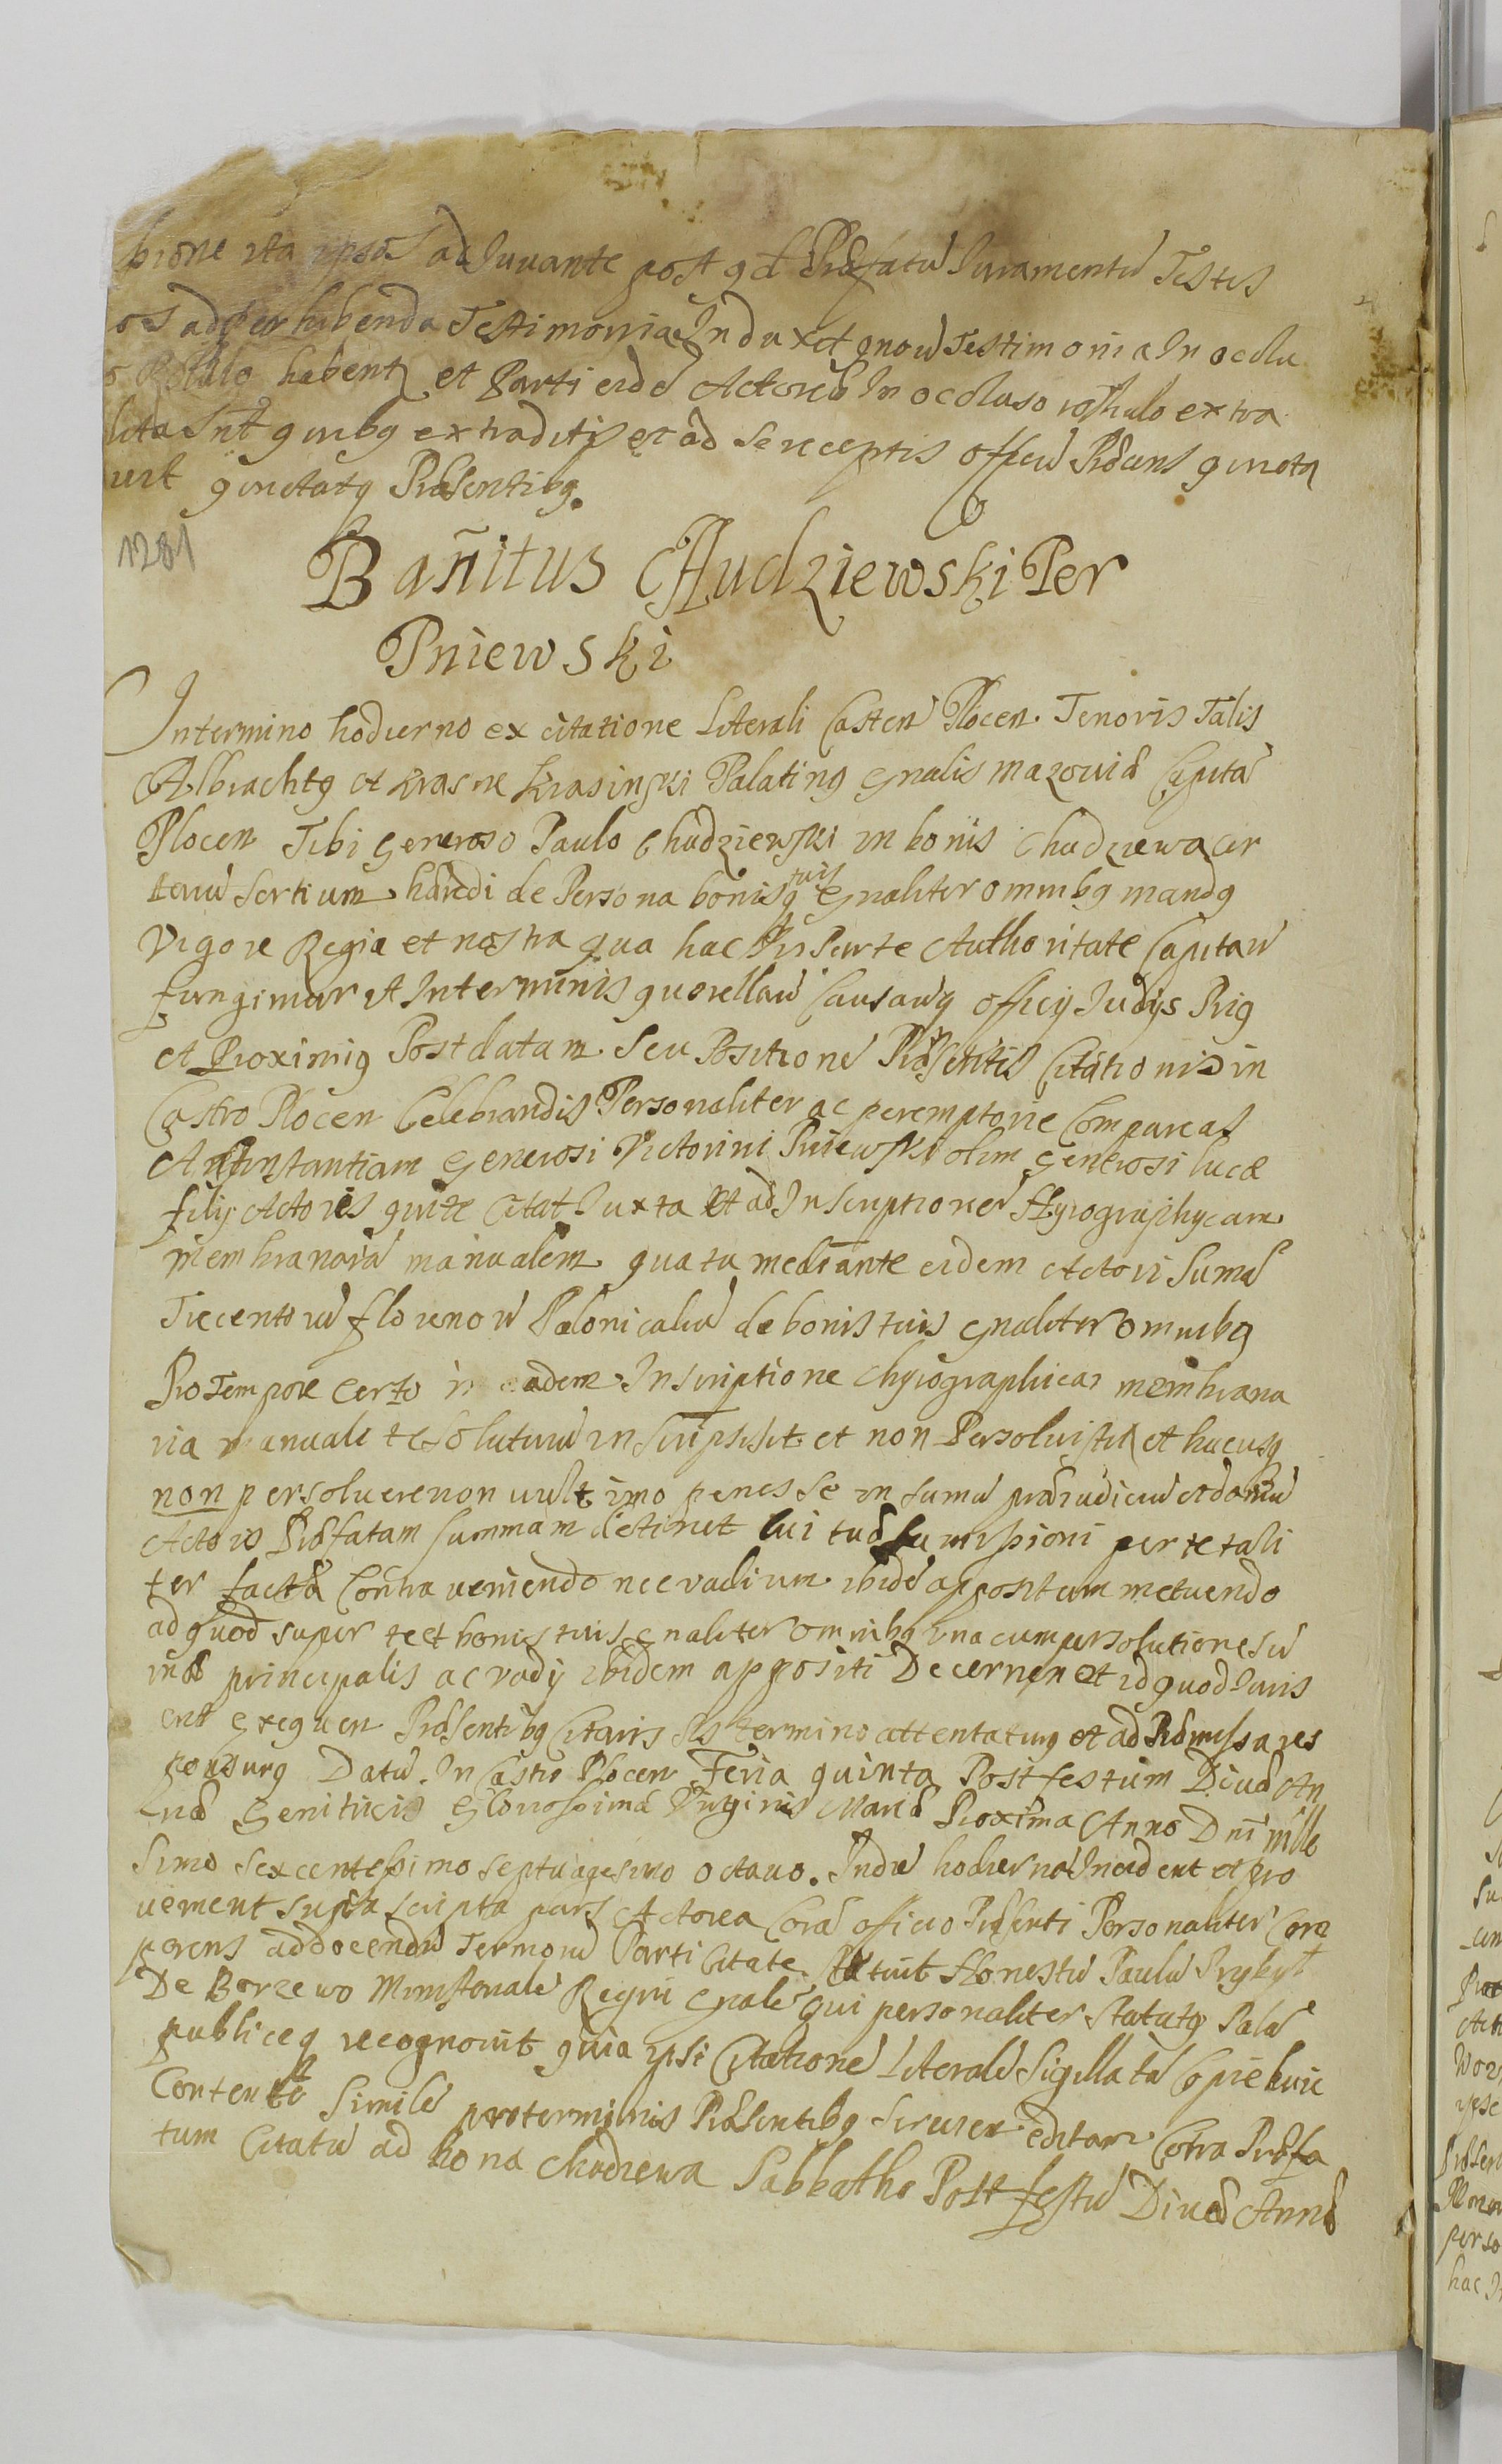 ssione ita ipsos adjuvante post qd Præfatū Iuramentū Testes
os ad perhibenda Testimonia Induxit quorū Testimonia In oclu
o Rotulo habentz et Parti eidē Actoreæ In occluso rothulo extra
dita Snt quibq extraditis et ad se receptis officiū Præsens quieta
uit quietatq Præsentibq.
1281
Bañitus Chudziewski Per
Pniewski
Intermino hodierno ex citatione Literali Casten Plocen. Tenoris Talis
Albrachtq et Krasne Krasinski Palatinq Gnalis mazoviæ Capitā
Plocen Tibi Generoso Paulo Chudziewski in bonis Chudziewa cir
ca Sertium hæredi de Persona bonisq tuis Gnaliter omnibq mandq
Vigore Regia et nostra qua hac In Parte Authoritate Capitan
fungimur ut Interminis querellarū Causarūq officij Iudijs Priq
et Proximiq Post datam Seu Positionē Præsentis Citationis in
Castro Plocen Celebrandis Personaliter ac peremptorie Compareas
Ad Instantiam Generosi Victorini Pniewski olim Generosi Lucæ
filij Actoris qui te Citat Iuxta et ad Inscriptionē Chyrographycam
membranarā manualem qua tu mediante eidem Actori Sumā
Trecentorū florenorū Polonicaliū de bonis tuis Gnaliter omnibq
Pro Tempore certo in eadem Inscriptione Chyrographica membrana
ria manuali te soluturū inscripsisti et non Persoluisti et hucusq
non persoluere non uult imo penes se in sumū præiudiciū et damnū
Actoris Præfatam summam detinet cui tuæ summissioni per te tali
ter factæ Contraueniendo nec vadium ibidē appositum metuendo
ad quod super te et bonis tuis Gnaliter omnibq una cum persolutione sū
mæ principalis ac vadij ibidem appositi Decernen et id quod Iuris
erit exequen Præsentibq Citaris sis termino attentaturq et ad Præmissa res
ponsurq Datū In Castro Plocen Feria quinta Post festum Divæ An
næ Genitricis Gloriosissimæ Virginis Mariæ Proxima Anno Dni mille
simo sexcentessimo septuagesimo octavo. Inde hodierna Incident et pro
uement supra scripta pars Actorea Corā officio Præsenti Personaliter Com
perens ad docendū Terminū Parti Citate Statuit Honestū Paulū Przybyt
De Borzewo Ministerialē Regni Gnalē qui personaliter statutq Palā
publiceq recognouit quia ipse Citationē Literalē Sigillatā Copiæ huic
Contentæ Similē pro terminis Præsentibq seruien editam Cotra Præfa
tum Citatū ad bona Chudzewa Sabbatho Post festū Divæ Annæ